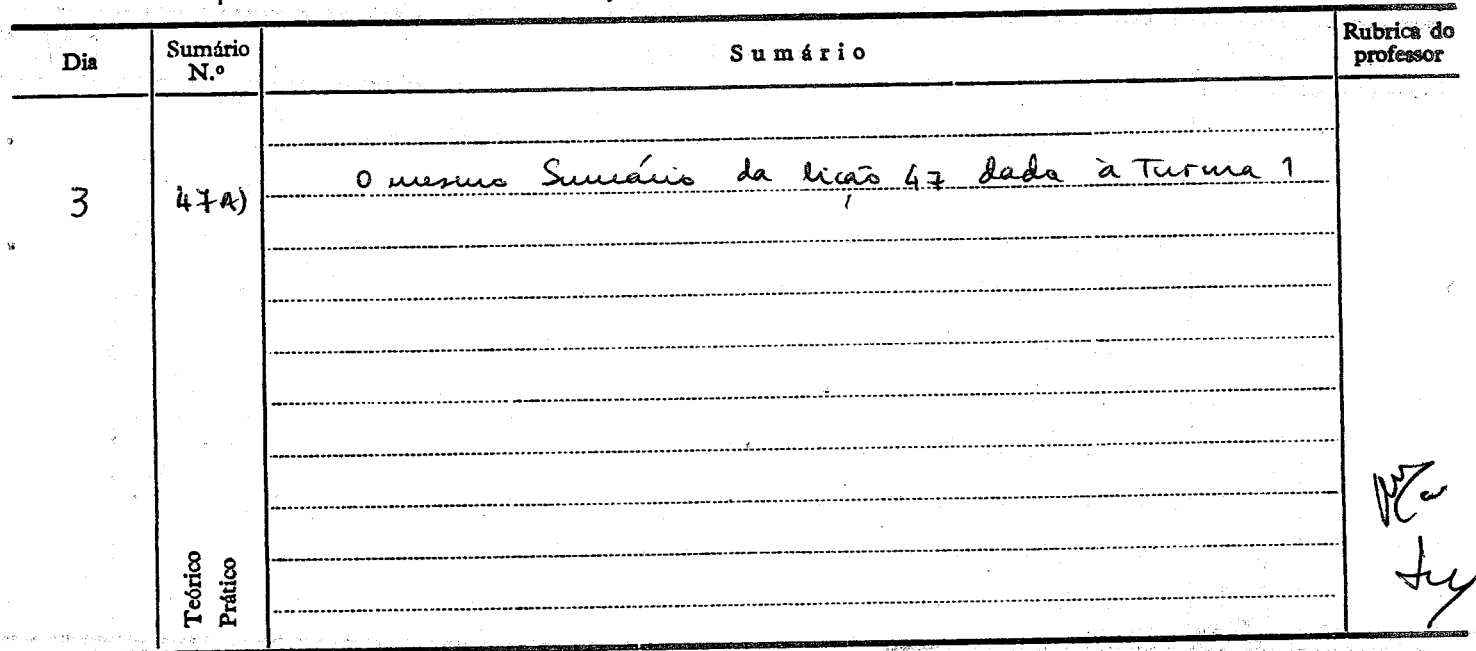 Dia
Sumário N.º
Sumário
Rubrica do professor
3
47A)
O mesmo Sumário da lição 47 dada à Turma 1
Teórico
Prático